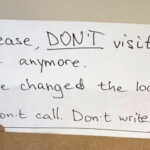 ease, DON'T visit
anymore.
e changed the loc
on't call. Don't write